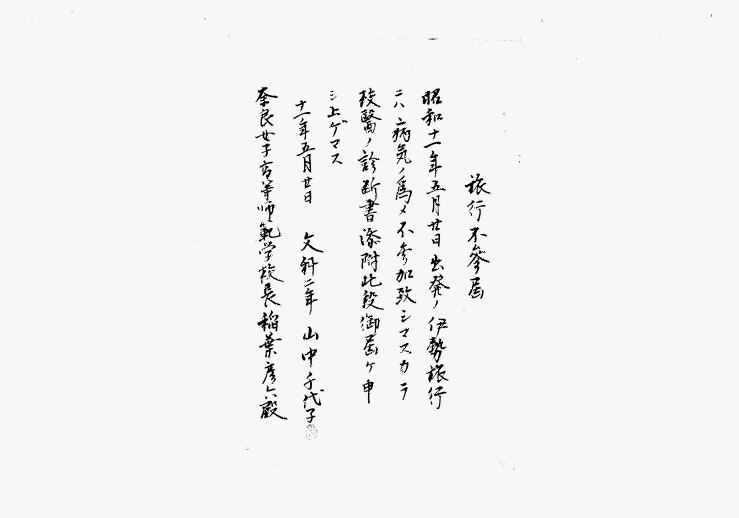 旅行不參届
昭和十一年五月廿日出発ノ伊勢旅行
ニハ病気ノ為メ不参加致シマスカラ
校醫ノ診断書添附此段御届ケ申
シ上ゲマス
十一年五月廿日 文科二年 山中千代子
奈良女子高等師範学校長 稲葉彦六殿